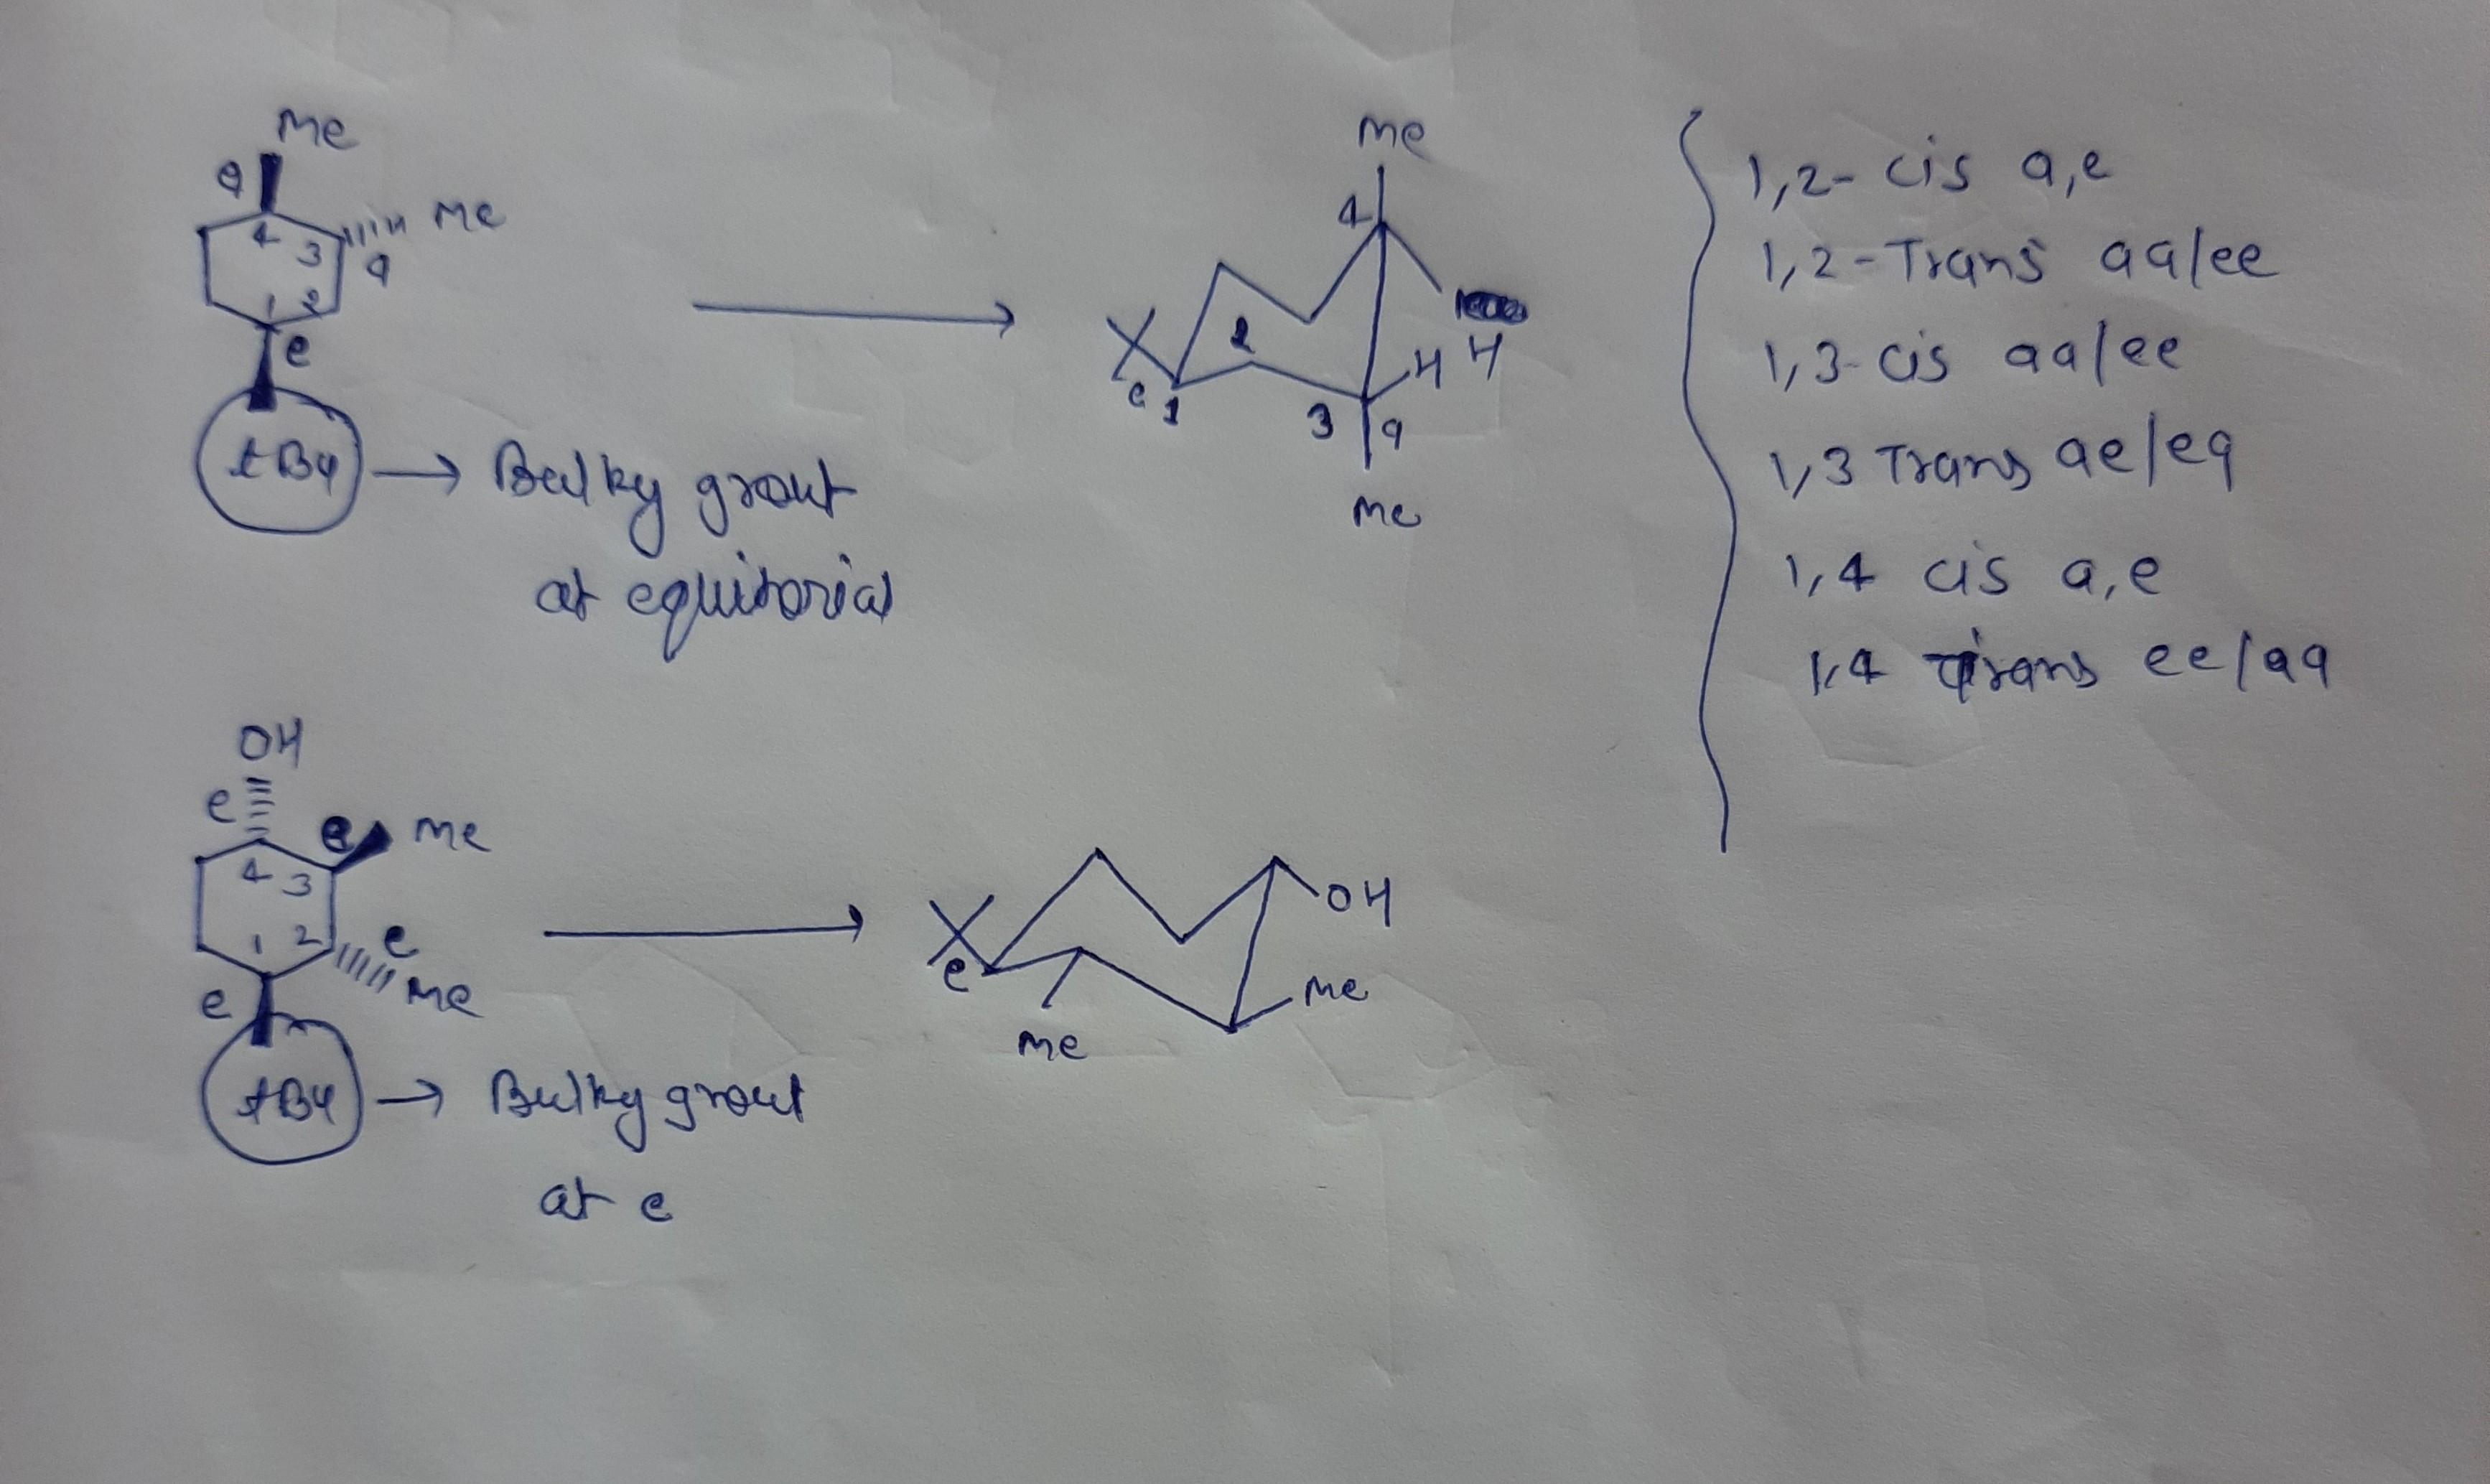 Me
a
Me
4
3
a
1
2
e
tBu → Bulky grout
at equitorial
Me
4
2
H
H
e
1
3
a
Me
1,2- cis a,e
1,2-Trans aa/ee
1,3-cis aa/ee
1,3 Trans ae/ea
1,4 cis a,e
1,4 Trans ee/aa
OH
e
e
Me
4
3
1
2
e
Me
e
tBu → Bulky grout
at e
OH
e
Me
Me